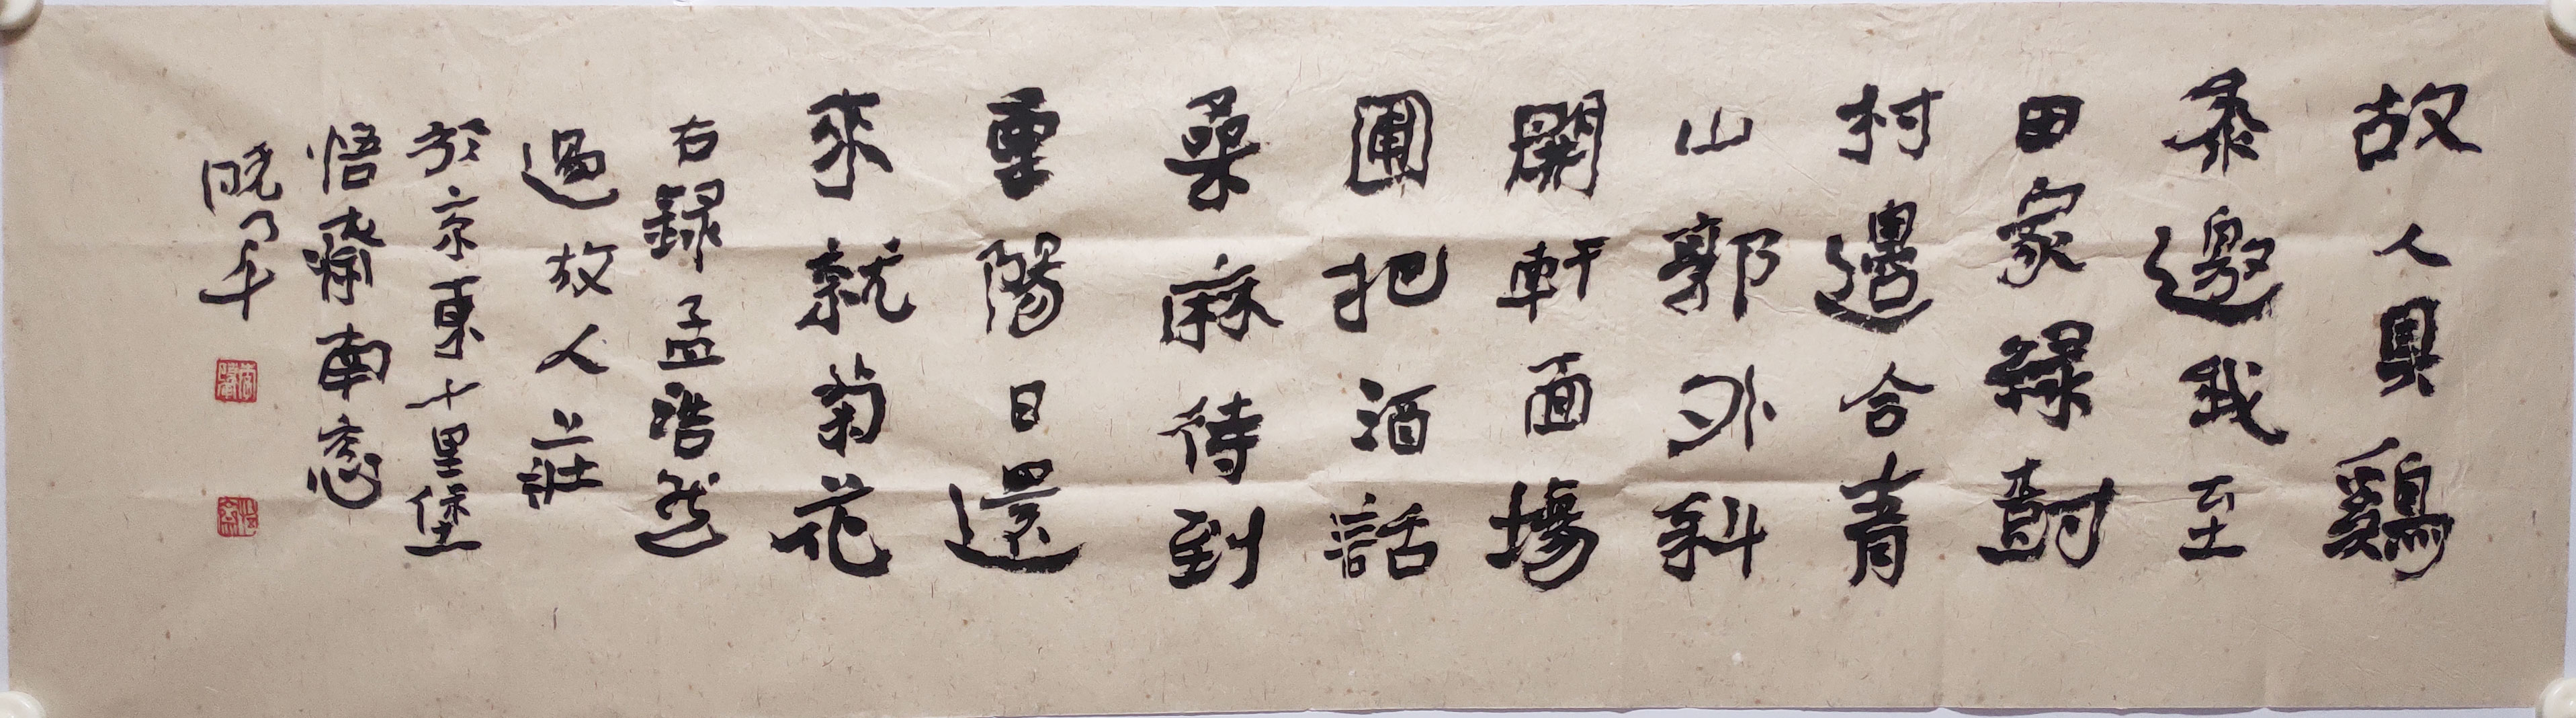 故人具鷄
黍邀我至
田家緑樹
村邊合青
山郭外斜
開軒面場
圃把酒話
桑麻待到
重陽日還
來就菊花
右録孟浩然
過故人莊
於京東十里堡
悟齋南窓
晓年